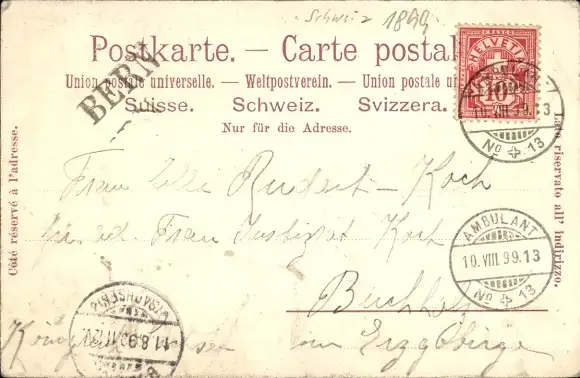 Schweiz 1899
Postkarte. — Carte postale
Union postale universelle. — Weltpostverein. — Union postale un
Suisse. Schweiz. Svizzera.
Nur für die Adresse.
BERN
HELVETIA
10
AMBULANT
10.VIII.99.13
No 13
Côté réservé à l'adresse.
Lato riservato all' indirizzo.
Frau Elli Rudert-Koch
Frau Justizrat Koch
Buchholz
im Erzgebirge
Königreich Sachsen
AMBULANT
10.VIII.99.13
No 13
(SACHSEN)
11.8.99